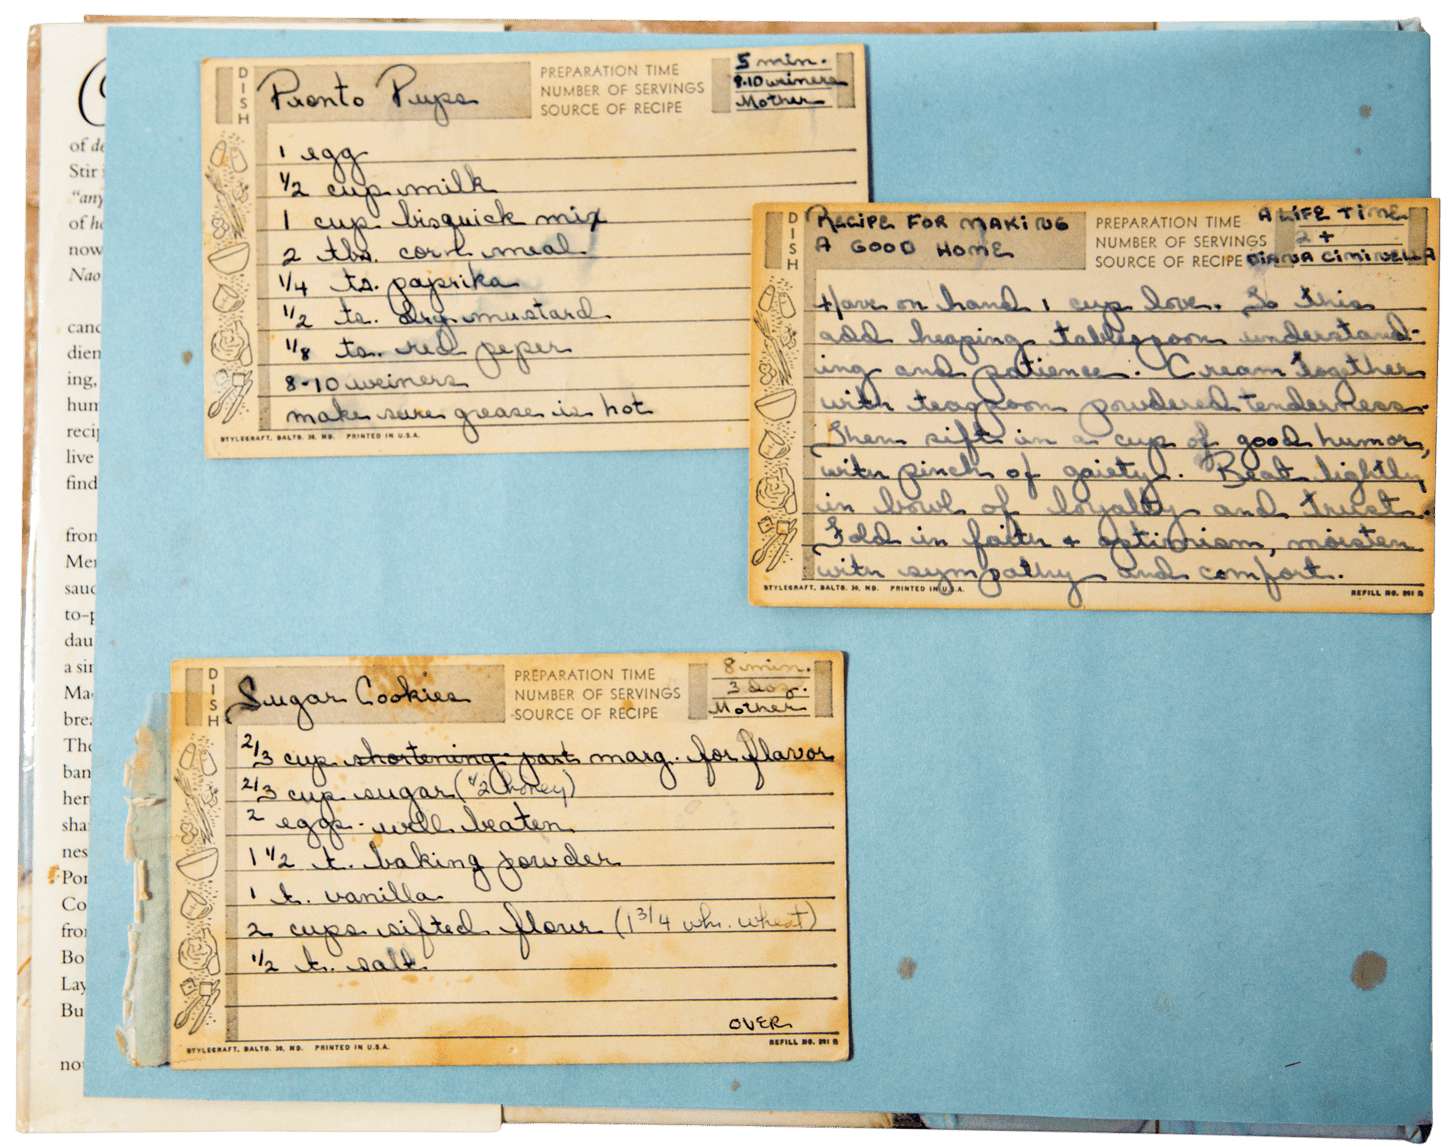 of de
Stir
"any
of he
now
Nao
canc
dien
ing,
hum
recip
live
find
from
Mer
sauc
to-p
dau
a sin
Mac
brea
The
ban
her
sha
nes
Por
Co
fro
Bo
Lay
Bu
not
DISH
Pronto Pups
PREPARATION TIME 5 min.
NUMBER OF SERVINGS 8-10 weiners
SOURCE OF RECIPE Mother
1 egg
1/2 cup milk
1 cup bisquick mix
2 tbs. corn meal
1/4 ts. paprika
1/2 ts. dry mustard
1/8 ts. red peper
8-10 weiners
make sure grease is hot
STYLECRAFT, BALTO. 30, MD. PRINTED IN U.S.A.
DISH
RECIPE FOR MAKING
A GOOD HOME
PREPARATION TIME A LIFE TIME
NUMBER OF SERVINGS 2 +
SOURCE OF RECIPE DIANA CIMINELLA
Have on hand 1 cup love. To this
add heaping tablespoon understand-
ing and patience. Cream together
with teaspoon powdered tenderness.
Then sift in a cup of good humor,
with pinch of gaiety. Beat lightly
in bowl of loyalty and trust.
Fold in faith + optimism, moisten
with sympathy and comfort.
STYLECRAFT, BALTO. 30, MD. PRINTED IN U.S.A.
REFILL NO. 291 R
DISH
Sugar Cookies
PREPARATION TIME 8 min.
NUMBER OF SERVINGS 3 doz.
SOURCE OF RECIPE Mother
2/3 cup shortening-part marg. for flavor
2/3 cup sugar (1/2 honey)
2 eggs-well beaten
1 1/2 t. baking powder
1 t. vanilla
2 cups sifted flour (1 3/4 wh. wheat)
1/2 t. salt
OVER
STYLECRAFT, BALTO. 30, MD. PRINTED IN U.S.A.
REFILL NO. 291 R